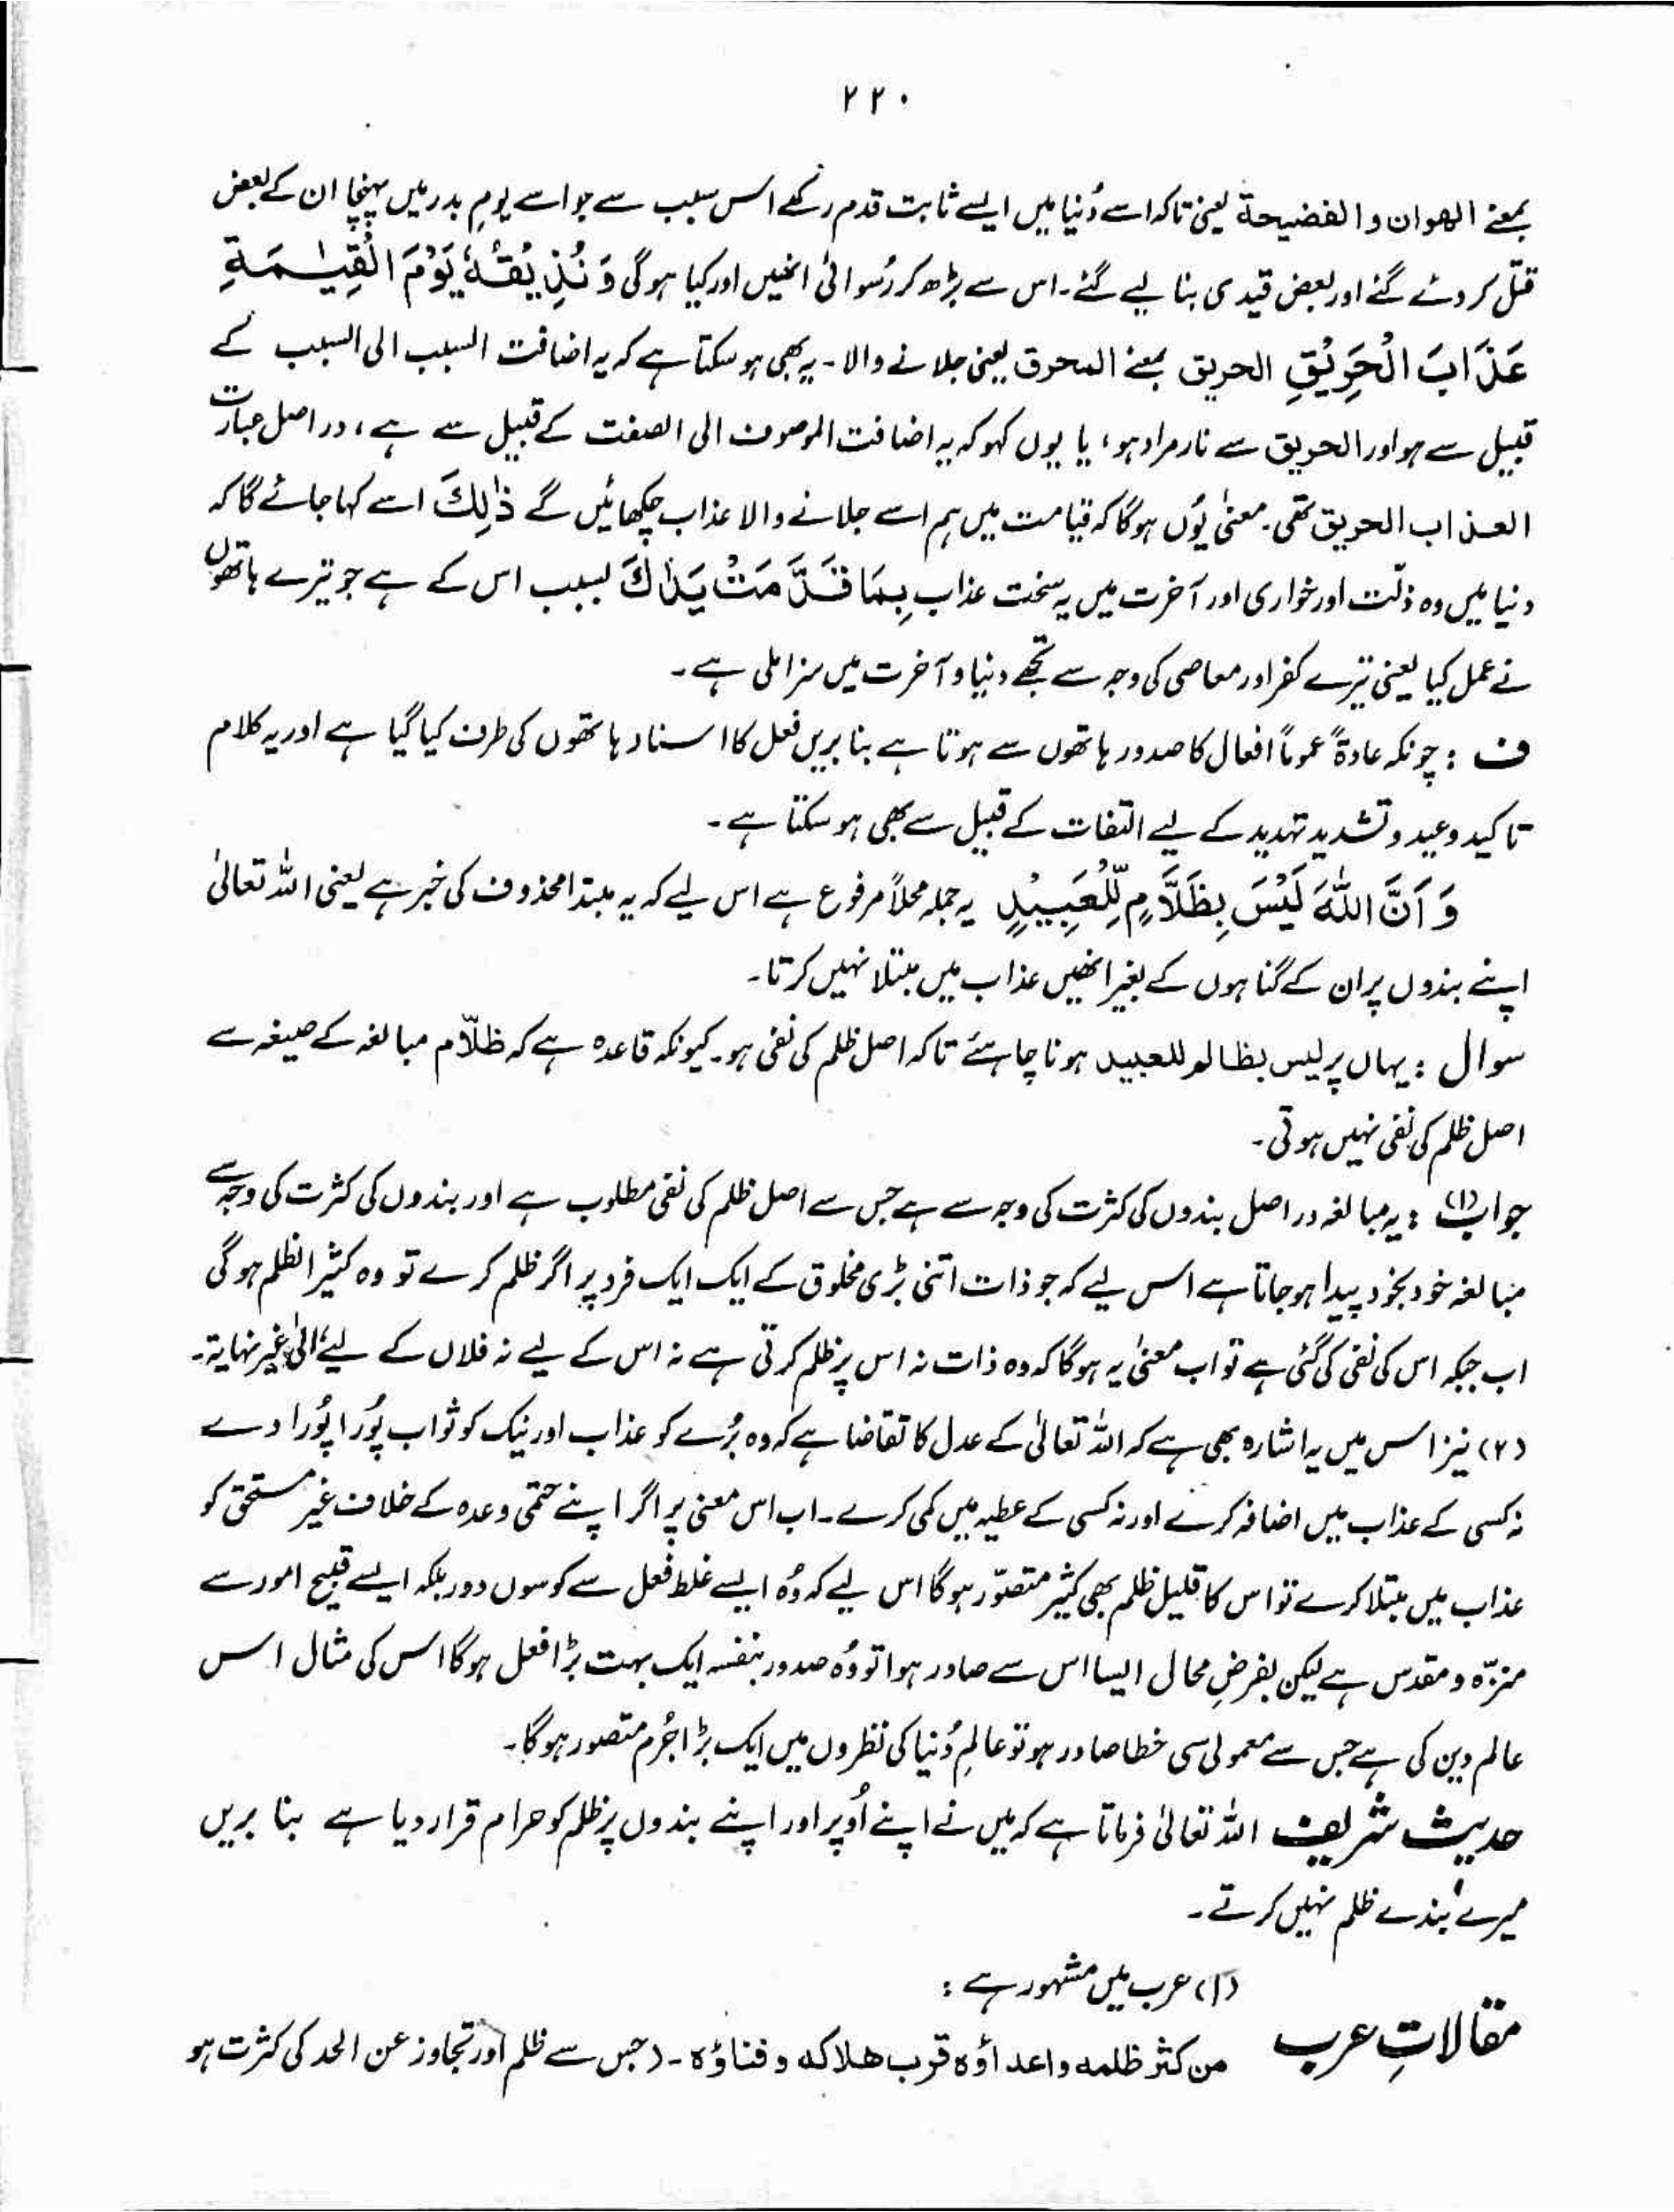 ۲۲۰
بمعنے الھوان والفضیحۃ یعنی تاکہ اسے دُنیا میں ایسے ثابت قدم رکھے اس سبب سے جو اسے یومِ بدر میں پہنچا ان کے بعض
قتل کر دئے گئے اور بعض قیدی بنا لیے گئے۔ اس سے بڑھ کر رُسوائی انھیں اور کیا ہوگی وَ نُذِیْقُہٗ یَوْمَ الْقِیٰمَۃِ
عَذَابَ الْحَرِیْقِ الحریق بمعنے المحرق یعنی جلانے والا۔ یہ بھی ہو سکتا ہے کہ یہ اضافت السبب الی السبب کے
قبیل سے ہو اور الحریق سے نار مراد ہو، یا یوں کہو کہ یہ اضافت الموصوف الی الصفت کے قبیل سے ہے، در اصل عبارت
العذاب الحریق تھی۔ معنیٰ یُوں ہوگا کہ قیامت میں ہم اسے جلانے والا عذاب چکھائیں گے ذٰلِکَ اسے کہا جائے گا کہ
دنیا میں وہ ذلّت اور خواری اور آخرت میں یہ سخت عذاب بِمَا قَدَّمَتْ یَدٰکَ بسبب اس کے ہے جو تیرے ہاتھوں
نے عمل کیا یعنی تیرے کفر اور معاصی کی وجہ سے تجھے دنیا و آخرت میں سزا ملی ہے۔
ف : چونکہ عادۃً عموماً افعال کا صدور ہاتھوں سے ہوتا ہے بنا بریں فعل کا اسناد ہاتھوں کی طرف کیا گیا ہے اور یہ کلام
تاکید وعید و تشدید تہدید کے لیے التفات کے قبیل سے بھی ہو سکتا ہے۔
وَ اَنَّ اللّٰہَ لَیْسَ بِظَلَّامٍ لِّلْعَبِیْدِ یہ جملہ محلاً مرفوع ہے اس لیے کہ یہ مبتدا محذوف کی خبر ہے یعنی اللہ تعالیٰ
اپنے بندوں پر ان کے گناہوں کے بغیر انھیں عذاب میں مبتلا نہیں کرتا۔
سوال : یہاں پر لیس بظالم للعبید ہونا چاہئے تاکہ اصل ظلم کی نفی ہو۔ کیونکہ قاعدہ ہے کہ ظلّام مبالغہ کے صیغہ سے
اصل ظلم کی نفی نہیں ہوتی۔
جواب (۱) : یہ مبالغہ در اصل بندوں کی کثرت کی وجہ سے ہے جس سے اصل ظلم کی نفی مطلوب ہے اور بندوں کی کثرت کی وجہ سے
مبالغہ خود بخود پیدا ہو جاتا ہے اس لیے کہ جو ذات اتنی بڑی مخلوق کے ایک ایک فرد پر اگر ظلم کرے تو وہ کثیر الظلم ہوگی
اب جبکہ اس کی نفی کی گئی ہے تو اب معنیٰ یہ ہوگا کہ وہ ذات نہ اس پر ظلم کرتی ہے نہ اس کے لیے نہ فلاں کے لیے، الیٰ غیر نہایۃ۔
(۲) نیز اس میں یہ اشارہ بھی ہے کہ اللہ تعالیٰ کے عدل کا تقاضا ہے کہ وہ بُرے کو عذاب اور نیک کو ثواب پُورا پُورا دے
نہ کسی کے عذاب میں اضافہ کرے اور نہ کسی کے عطیہ میں کمی کرے۔ اب اس معنی پر اگر اپنے حتمی وعدہ کے خلاف غیر مستحق کو
عذاب میں مبتلا کرے تو اس کا قلیل ظلم بھی کثیر متصوّر ہوگا اس لیے کہ وُہ ایسے غلط فعل سے کوسوں دور بلکہ ایسے قبیح امور سے
منزّہ و مقدس ہے لیکن بفرضِ محال ایسا اس سے صادر ہوا تو وُہ صدور بنفسہ ایک بہت بڑا فعل ہوگا اس کی مثال اس
عالم دین کی ہے جس سے معمولی سی خطا صادر ہو تو عالمِ دُنیا کی نظروں میں ایک بڑا جُرم متصور ہوگا۔
حدیث شریف اللہ تعالیٰ فرماتا ہے کہ میں نے اپنے اُوپر اور اپنے بندوں پر ظلم کو حرام قرار دیا ہے بنا بریں
میرے بندے ظلم نہیں کرتے۔
(۱) عرب میں مشہور ہے :
مقالاتِ عرب من کثر ظلمه واعداؤه قرب هلاكه و فناؤه۔ (جس سے ظلم اور تجاوز عن الحد کی کثرت ہو